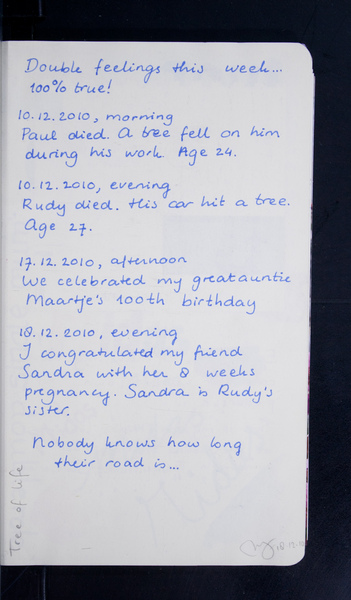 Double feelings this week...
100% true!
10.12.2010, morning
Paul died. A tree fell on him
during his work. Age 24.
10.12.2010, evening
Rudy died. His car hit a tree.
Age 27.
17.12.2010, afternoon
We celebrated my greatauntie
Maartje's 100th birthday
18.12.2010, evening
I congratulated my friend
Sandra with her 8 weeks
pregnancy. Sandra is Rudy's
sister.
Nobody knows how long
their road is...
Tree of life